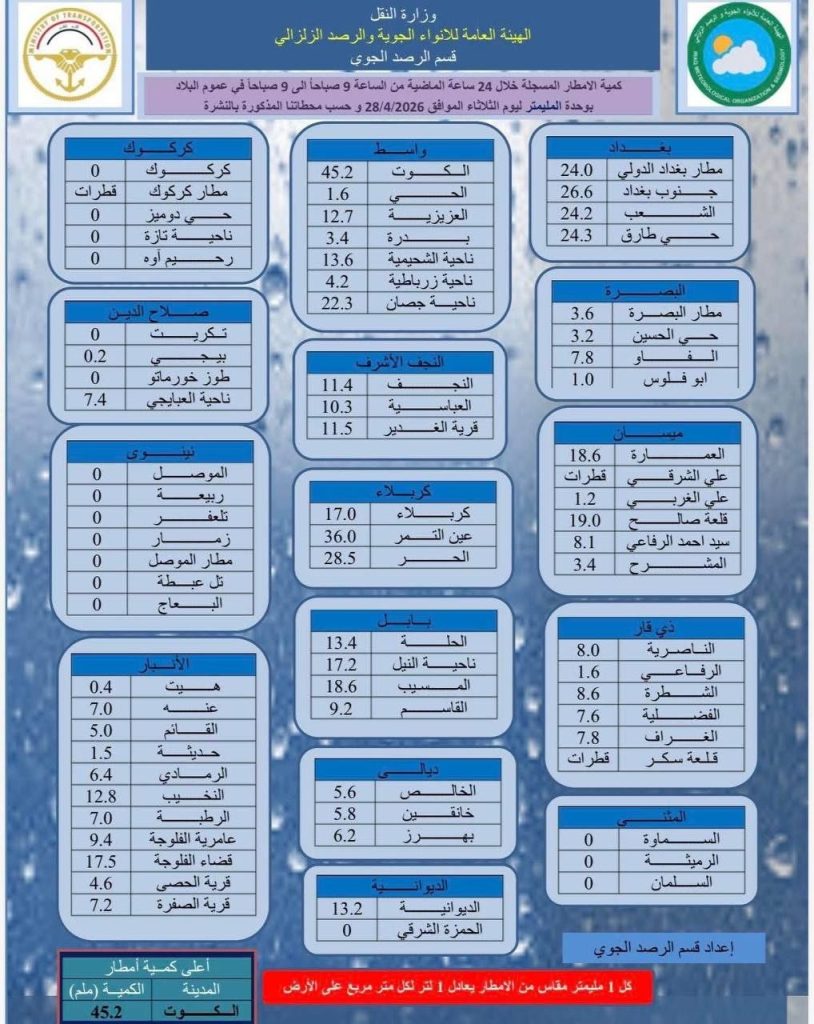 وزارة النقل
الهيئة العامة للانواء الجوية والرصد الزلزالي
قسم الرصد الجوي
MINISTRY OF TRANSPORTATION
الهيئة العامة للأنواء الجوية و الرصد الزلزالي
IRAQ METEOROLOGICAL ORGANIZATION & SEISMOLOGY
كمية الامطار المسجلة خلال 24 ساعة الماضية من الساعة 9 صباحاً الى 9 صباحاً في عموم البلاد
بوحدة المليمتر ليوم الثلاثاء الموافق 28/4/2026 و حسب محطاتنا المذكورة بالنشرة
بغداد
مطار بغداد الدولي 24.0
جنوب بغداد 26.6
الشعب 24.2
حي طارق 24.3
البصرة
مطار البصرة 3.6
حي الحسين 3.2
الفاو 7.8
ابو فلوس 1.0
ميسان
العمارة 18.6
علي الشرقي قطرات
علي الغربي 1.2
قلعة صالح 19.0
سيد احمد الرفاعي 8.1
المشرح 3.4
ذي قار
الناصرية 8.0
الرفاعي 1.6
الشطرة 8.6
الفضلية 7.6
الغراف 7.8
قلعة سكر قطرات
المثنى
السماوة 0
الرميثة 0
السلمان 0
إعداد قسم الرصد الجوي
واسط
الكوت 45.2
الحي 1.6
العزيزية 12.7
بدرة 3.4
ناحية الشحيمية 13.6
ناحية زرباطية 4.2
ناحية جصان 22.3
النجف الأشرف
النجف 11.4
العباسية 10.3
قرية الغدير 11.5
كربلاء
كربلاء 17.0
عين التمر 36.0
الحر 28.5
بابل
الحلة 13.4
ناحية النيل 17.2
المسيب 18.6
القاسم 9.2
ديالى
الخالص 5.6
خانقين 5.8
بهرز 6.2
الديوانية
الديوانية 13.2
الحمزة الشرقي 0
كركوك
كركوك 0
مطار كركوك قطرات
حي دوميز 0
ناحية تازة 0
رحيم أوه 0
صلاح الدين
تكريت 0
بيجي 0.2
طوز خورماتو 0
ناحية العبايجي 7.4
نينوى
الموصل 0
ربيعة 0
تلعفر 0
زمار 0
مطار الموصل 0
تل عبطة 0
البعاج 0
الأنبار
هيت 0.4
عنه 7.0
القائم 5.0
حديثة 1.5
الرمادي 6.4
النخيب 12.8
الرطبة 7.0
عامرية الفلوجة 9.4
قضاء الفلوجة 17.5
قرية الحصى 4.6
قرية الصفرة 7.2
أعلى كمية أمطار
المدينة الكمية (ملم)
الكوت 45.2
كل 1 مليمتر مقاس من الامطار يعادل 1 لتر لكل متر مربع على الأرض